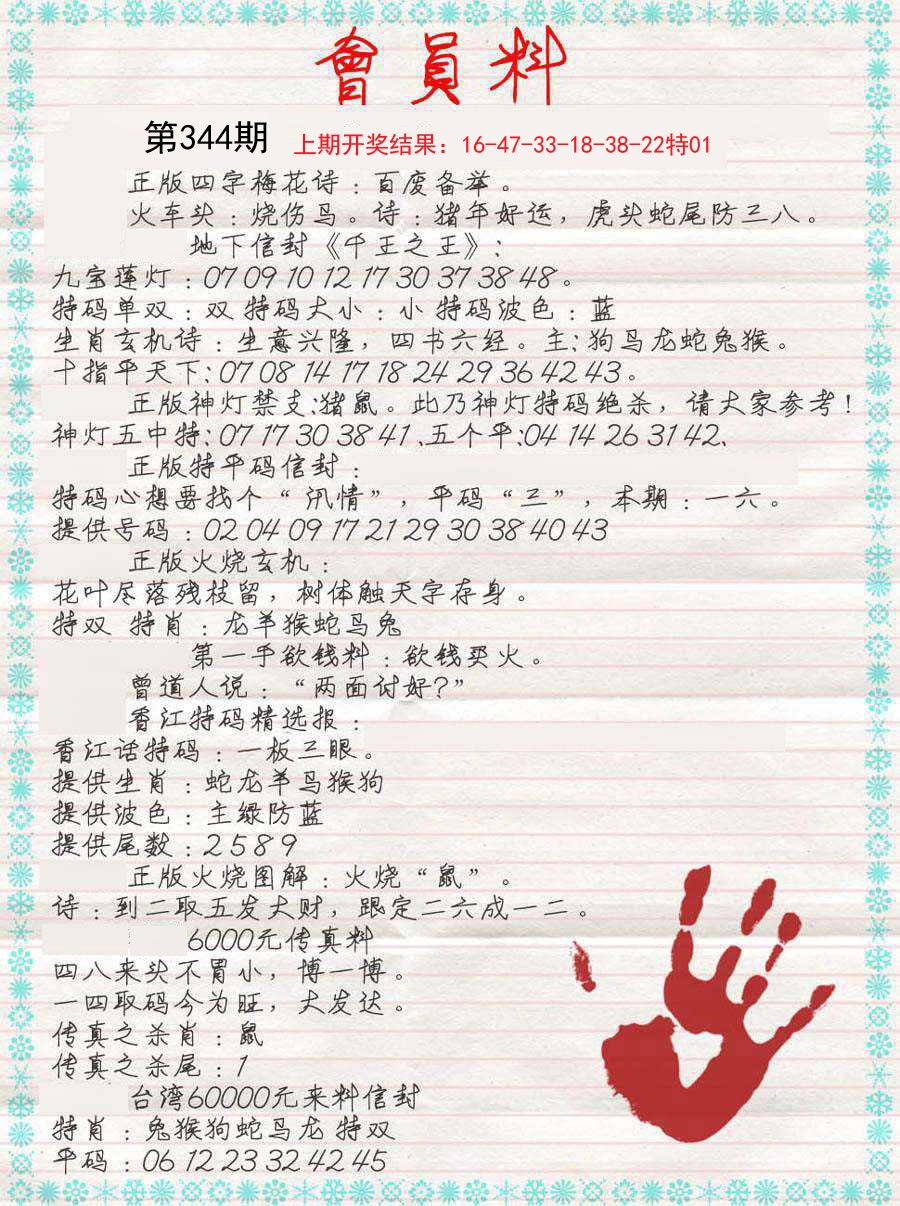 會員料
第344期 上期开奖结果：16-47-33-18-38-22特01
正版四字梅花诗：百废备举。
火车头：烧伤鸟。诗：猪年好运，虎头蛇尾防三八。
地下信封《千王之王》：
九宝莲灯：07 09 10 12 17 30 37 38 48。
特码单双：双 特码大小：小 特码波色：蓝
生肖玄机诗：生意兴隆，四书六经。主：狗马龙蛇兔猴。
十指平天下：07 08 14 17 18 24 29 36 42 43。
正版神灯禁支:猪鼠。此乃神灯特码绝杀，请大家参考！
神灯五中特：07 17 30 38 41、五个平:04 14 26 31 42、
正版特平码信封：
特码心想要找个“汛情”，平码“三”，本期：一六。
提供号码：02 04 09 17 21 29 30 38 40 43
正版火烧玄机：
花叶尽落残枝留，树体触天字存身。
特双 特肖：龙羊猴蛇马兔
第一手欲钱料：欲钱买火。
曾道人说：“两面讨好?”
香江特码精选报：
香江话特码：一板三眼。
提供生肖：蛇龙羊马猴狗
提供波色：主绿防蓝
提供尾数：2 5 8 9
正版火烧图解：火烧“鼠”。
诗：到二取五发大财，跟定二六成一二。
6000元传真料
四八来头不胃小，博一博。
一四取码今为旺，大发达。
传真之杀肖：鼠
传真之杀尾：1
台湾60000元来料信封
特肖：兔猴狗蛇马龙 特双
平码：06 12 23 32 42 45